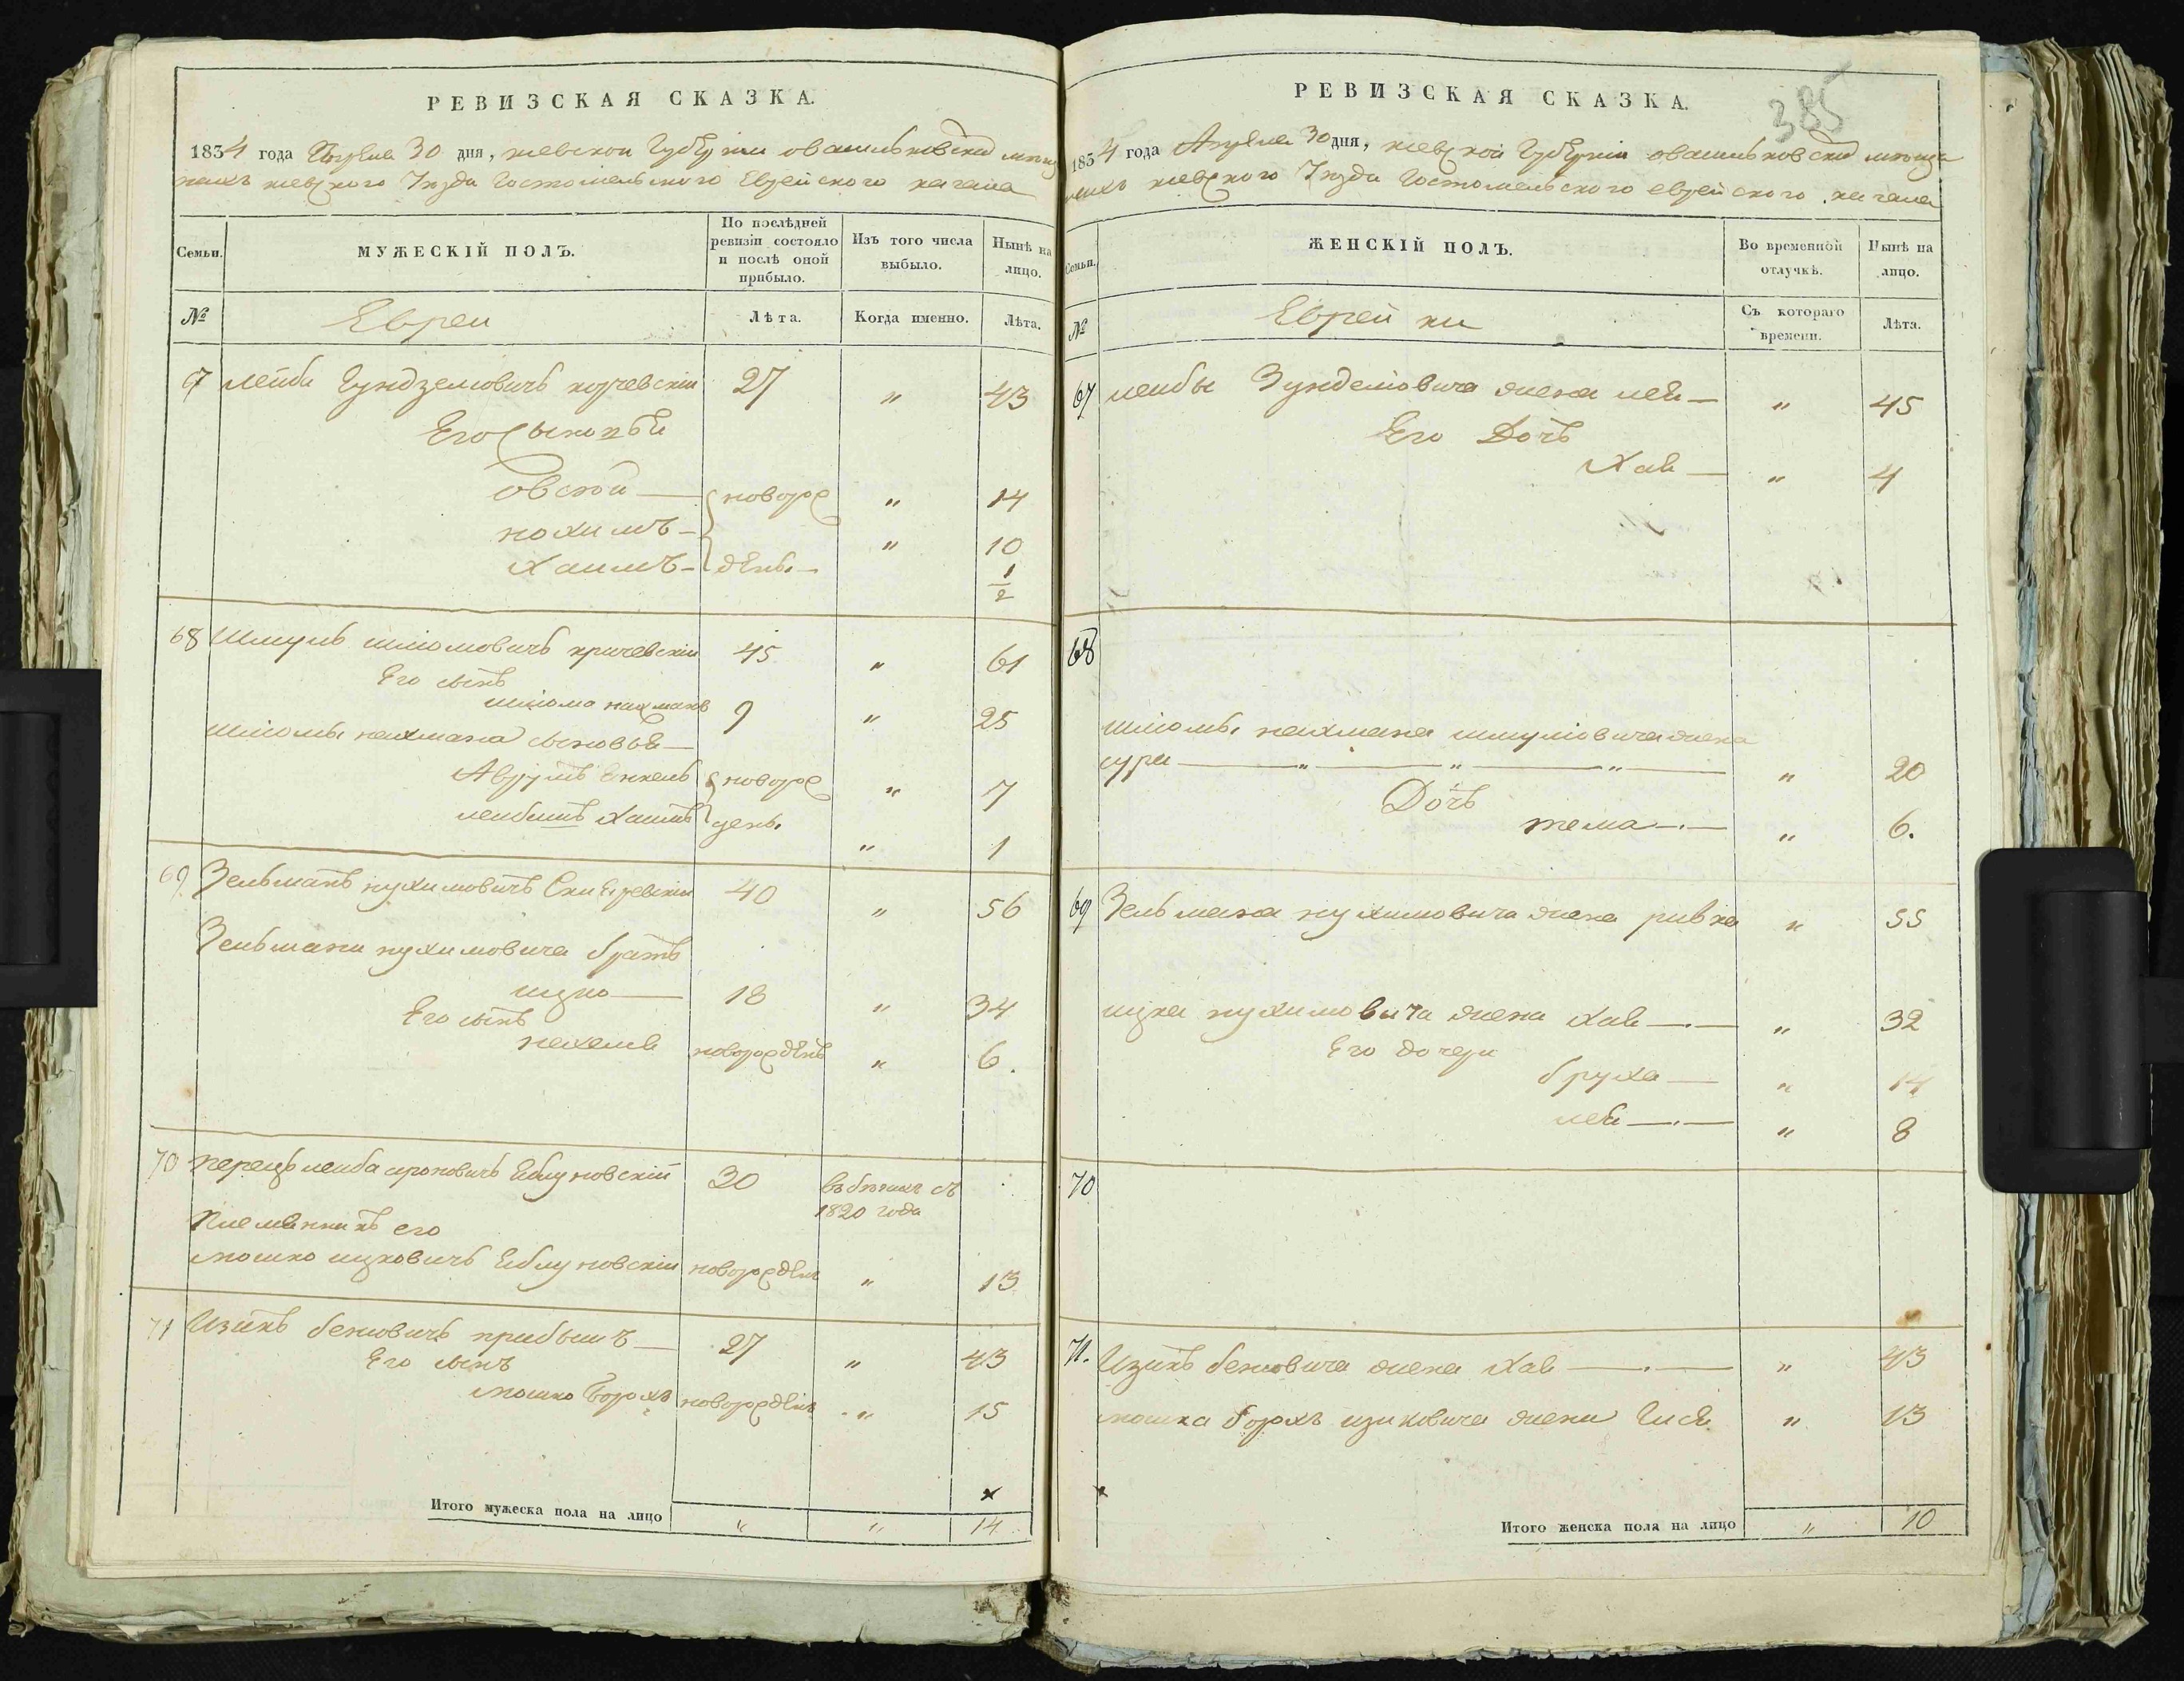 РЕВИЗСКАЯ СКАЗКА.
1834 года Апреля 30 дня, киевской Губернии о васильковских мещанахъ киевского Уезда Гостомельского Еврейского кагала
Семьи.
МУЖЕСКІЙ ПОЛЪ.
По послѣдней ревизіи состояло и послѣ оной прибыло.
Изъ того числа выбыло.
Нынѣ на лицо.
№
Евреи
Лѣта.
Когда именно.
Лѣта.
67 лейба Зунделиовичъ 27 " 43
Его сыновья
овсей — новорож " 14
нохимъ — " 10
Хаимъ — денъ. — 1/2
68 Шмуль шліомовичъ кричевскіи 45 " 61
Его сынъ
шліома нахманъ 9 " 25
шліомы нахмана сыновья —
Аврумъ Енкель новорож " 7
лейбишъ Хаимъ денъ. " 1
69 Зельманъ нухимовичъ 40 " 56
Зельмана нухимовича братъ
ицко — 18 " 34
Его сынъ
новорожденъ " 6.
70 перецъ лейба Еблуновскій 30 въ бегахъ съ
1820 года
Племянникъ его
мошко ицковичъ Еблуновскіи новорожденъ " 13
71 Изикъ 27 " 43
Его сынъ
мошко Борохъ новорожденъ " 15
х
Итого мужеска пола на лицо " " 14
РЕВИЗСКАЯ СКАЗКА.
385
1834 года Апреля 30 дня, киевской Губерніи о васильковских мещанахъ киевского Уезда Гостомельского еврейского кагала
Семьи.
ЖЕНСКІЙ ПОЛЪ.
Во временной отлучкѣ.
Нынѣ на лицо.
№
Еврейки
Съ котораго времени.
Лѣта.
67 лейбы Зунделіовича жена лея — " 45
Его Дочь
Хая — " 4
68
шліомы нахмана шмуліовича жена
сура — " — " — " — " 20
Дочь
тема — " 6.
69 Зельмана нухимовича жена ривка " 55
ицка нухимовича жена Хая — " 32
Его дочери
бруха — " 14
лея — " 8
70
71. Изикъ жена Хая — " 43
мошка борохъ изиковича жена " 13
х
Итого женска пола на лицо " 10